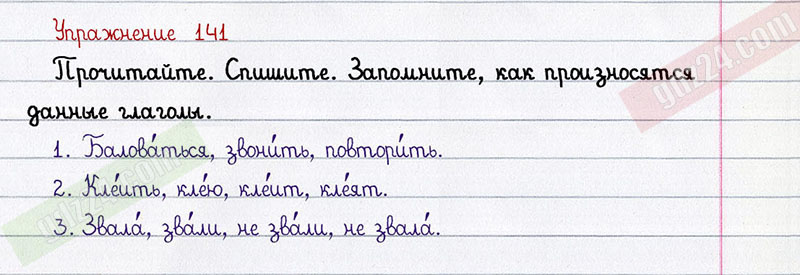 Упражнение 141
Прочитайте. Спишите. Запомните, как произносятся
данные глаголы.
1. Балова́ться, звони́ть, повтори́ть.
2. Кле́ить, кле́ю, кле́ит, кле́ят.
3. Звала́, зва́ли, не зва́ли, не звала́.
gdz24.com
gdz24.com